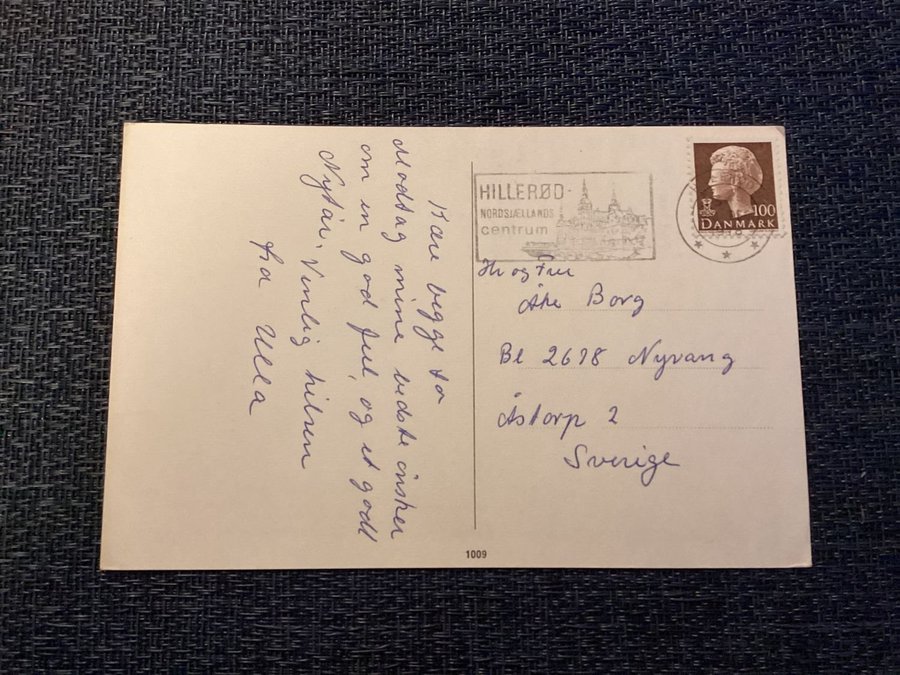 Kære begge to
Modtag mine bedste ønsker
om en god jul, og et godt
Nytår, Venlig hilsen
fra Ulla
HILLERØD-
NORDSJÆLLANDS
centrum
100
DANMARK
Hr og Fru
Åke Borg
Bl 2678 Nyvang
Åstorp 2
Sverige
1009